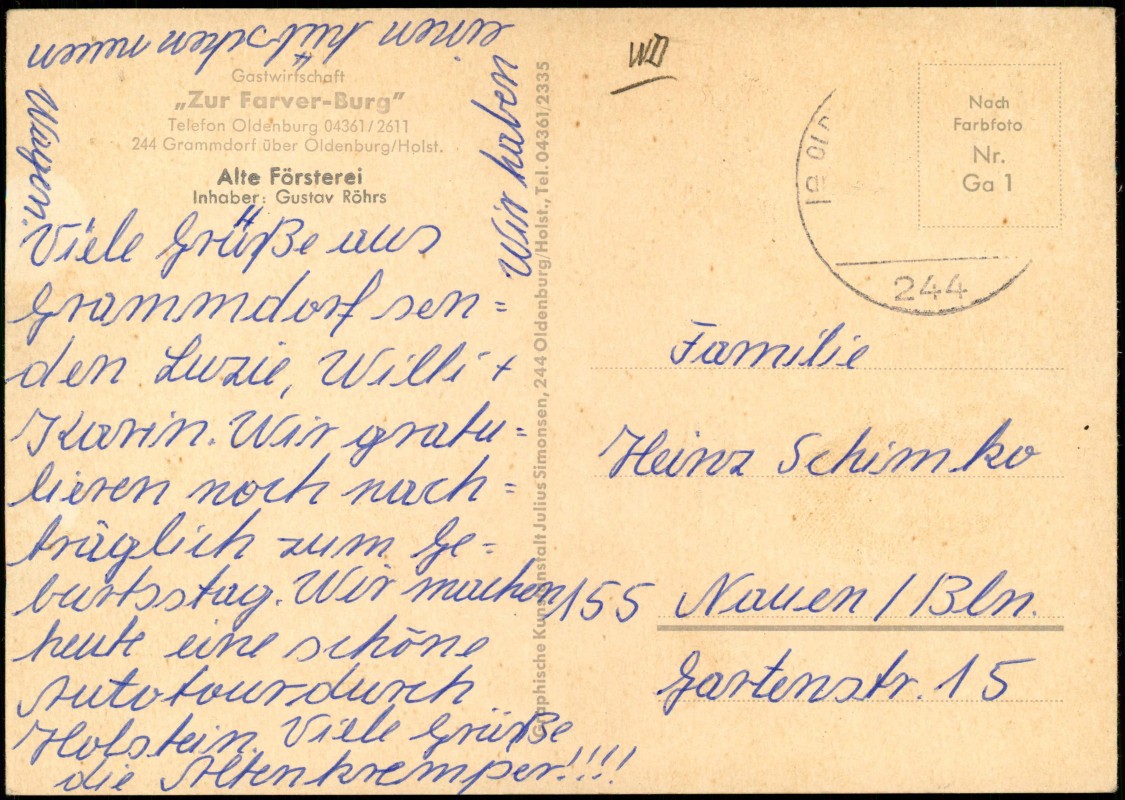 Gastwirtschaft
„Zur Farver-Burg"
Telefon Oldenburg 04361/2611
244 Grammdorf über Oldenburg/Holst.
Alte Försterei
Inhaber: Gustav Röhrs
Viele Grüße aus
Grammdorf sen=
den Luzie, Willi +
Karin. Wir gratu=
lieren noch nach=
träglich zum Ge=
burtsstag. Wir machen
heute eine schöne
Autotour durch
Holstein. Viele Grüße
die Altenkremper!!!!
Wir haben
einen hübschen neuen
Wagen.
Graphische Kunstanstalt Julius Simonsen, 244 Oldenburg/Holst., Tel. 04361/2335
WD
Nach
Farbfoto
Nr.
Ga 1
244
Familie
Heinz Schimko
155 Nauen / Bln.
Gartenstr. 15